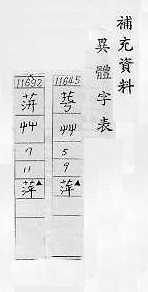 補充資料
異體字表
11645
艸
5
9
萍▲
11692
蓱
艸
7
11
萍▲